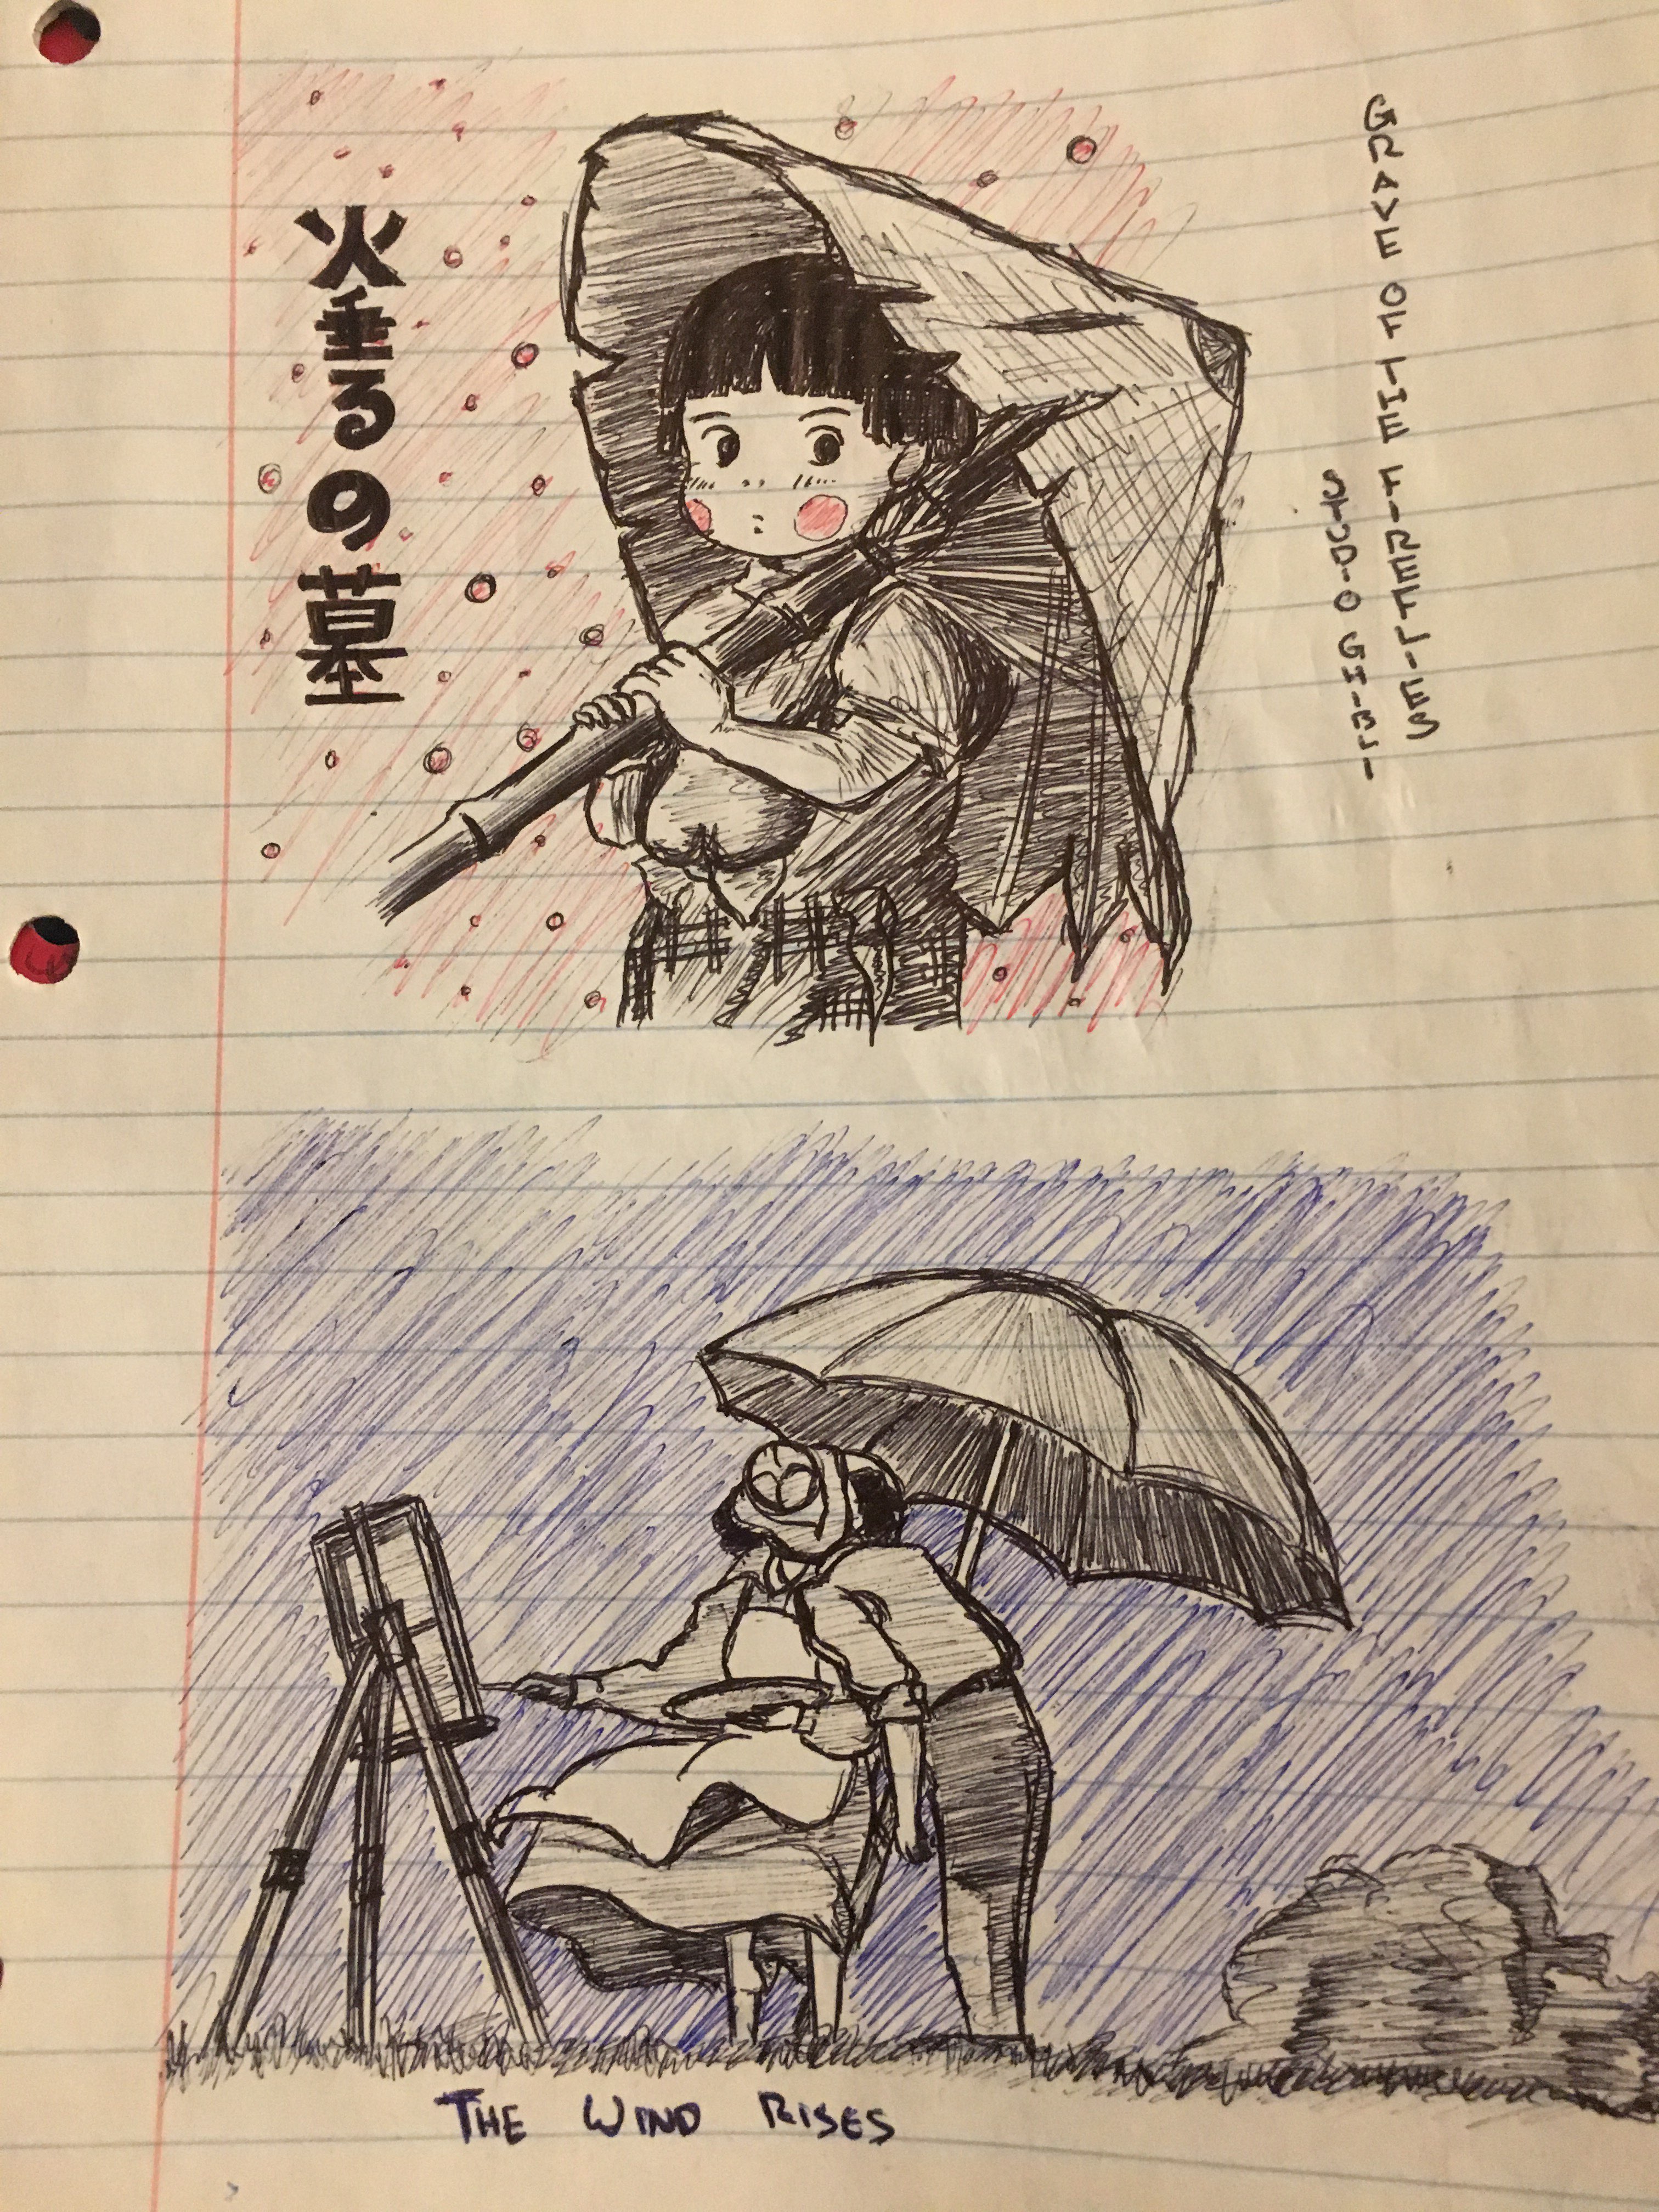 火垂るの墓
GRAVE OF THE FIREFLIES
STUDIO GHIBLI
THE WIND RISES